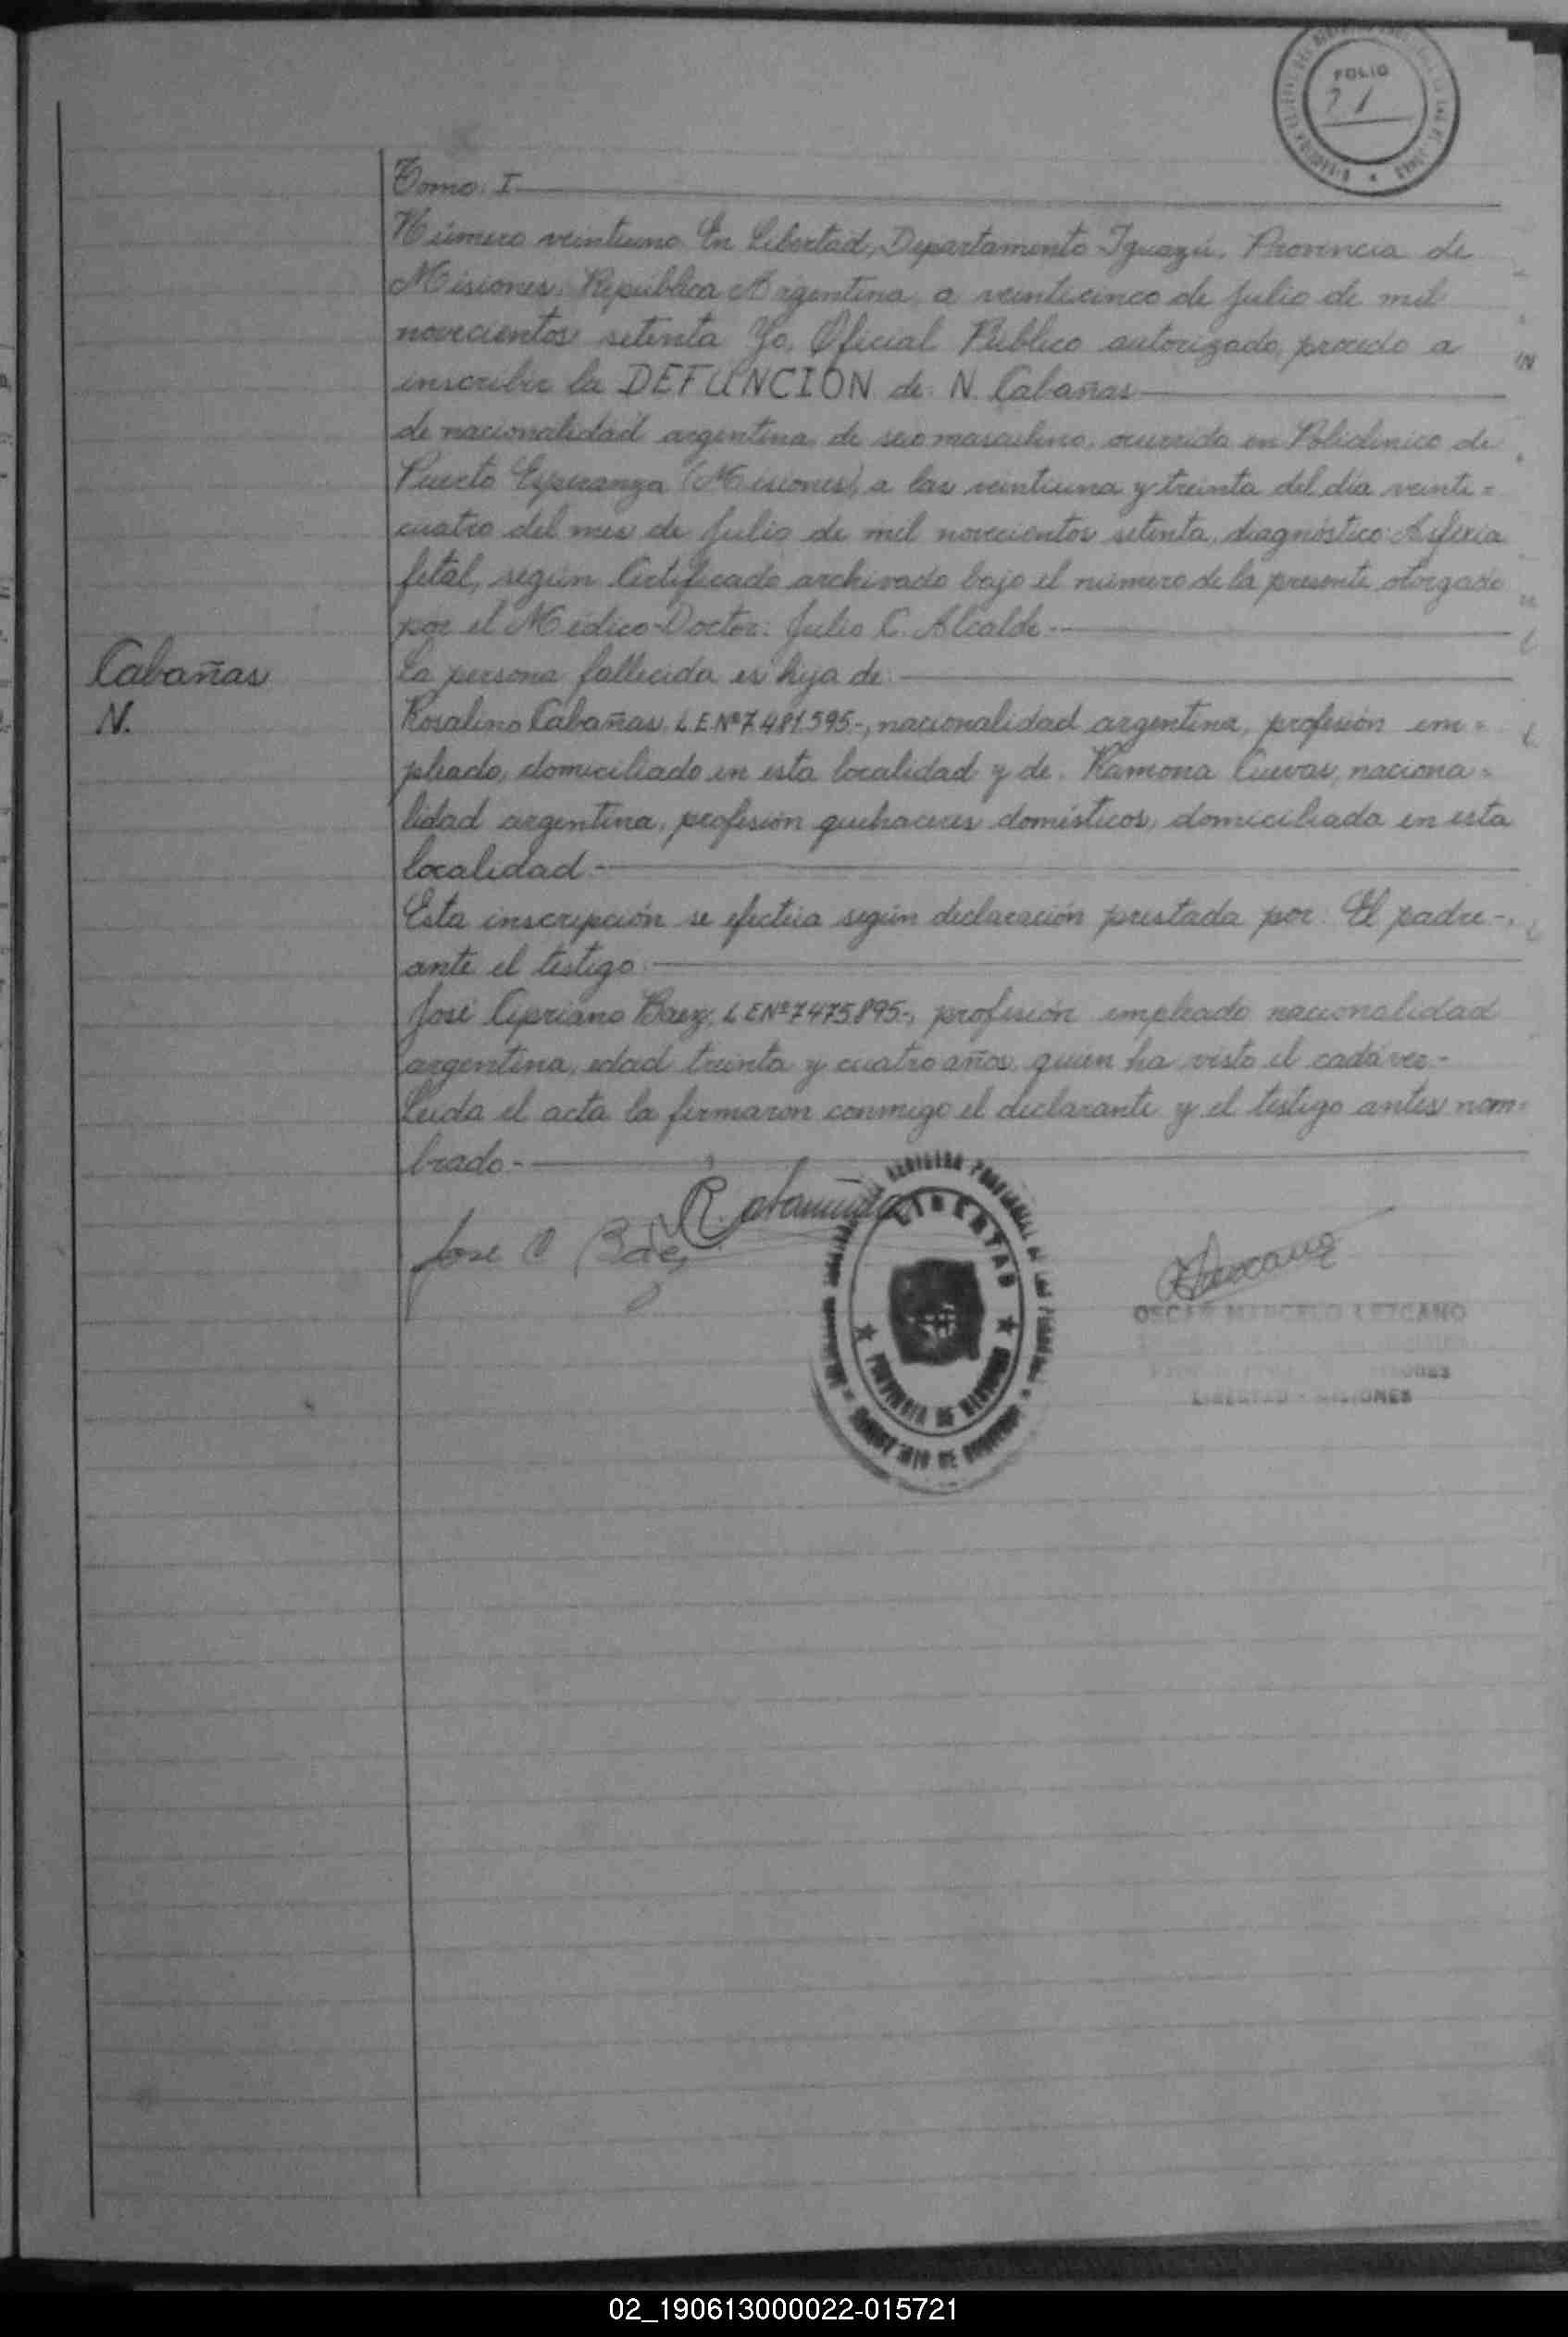 FOLIO
21
Tomo: I
Número veintiuno. En Libertad, Departamento Iguazú, Provincia de
Misiones, República Argentina, a veinticinco de Julio de mil
novecientos setenta. Yo, Oficial Público autorizado, procedo a
inscribir la DEFUNCION de: N. Cabañas
de nacionalidad argentina, de sexo masculino, ocurrida en Policlinico de
Puerto Esperanza (Misiones), a las veintiuna y treinta del día veinti=
cuatro del mes de Julio de mil novecientos setenta, diagnóstico: Asfixia
fetal, según Certificado archivado bajo el número de la presente, otorgado
por el Médico-Doctor: Julio C. Alcalde.-
Cabañas
N.
La persona fallecida es hija de:
Rosalino Cabañas, L.E.Nº7.481.595-, nacionalidad argentina, profesión em=
pleado, domiciliado en esta localidad y de: Ramona Cuevas, naciona=
lidad argentina, profesión quehaceres domésticos, domiciliada en esta
localidad.-
Esta inscripción se efectúa según declaración prestada por: El padre-,
ante el testigo:
José Cipriano Baez, L.E.Nº7.475.895-, profesión empleado nacionalidad
argentina, edad treinta y cuatro años, quien ha visto el cadáver.-
Leída el acta la firmaron conmigo el declarante y el testigo antes nom=
brado.-
Jose C Baez
LIBERTAD
PROVINCIA DE MISIONES
OSCAR MARCELO LEZCANO
LIBERTAD - MISIONES
02_190613000022-015721